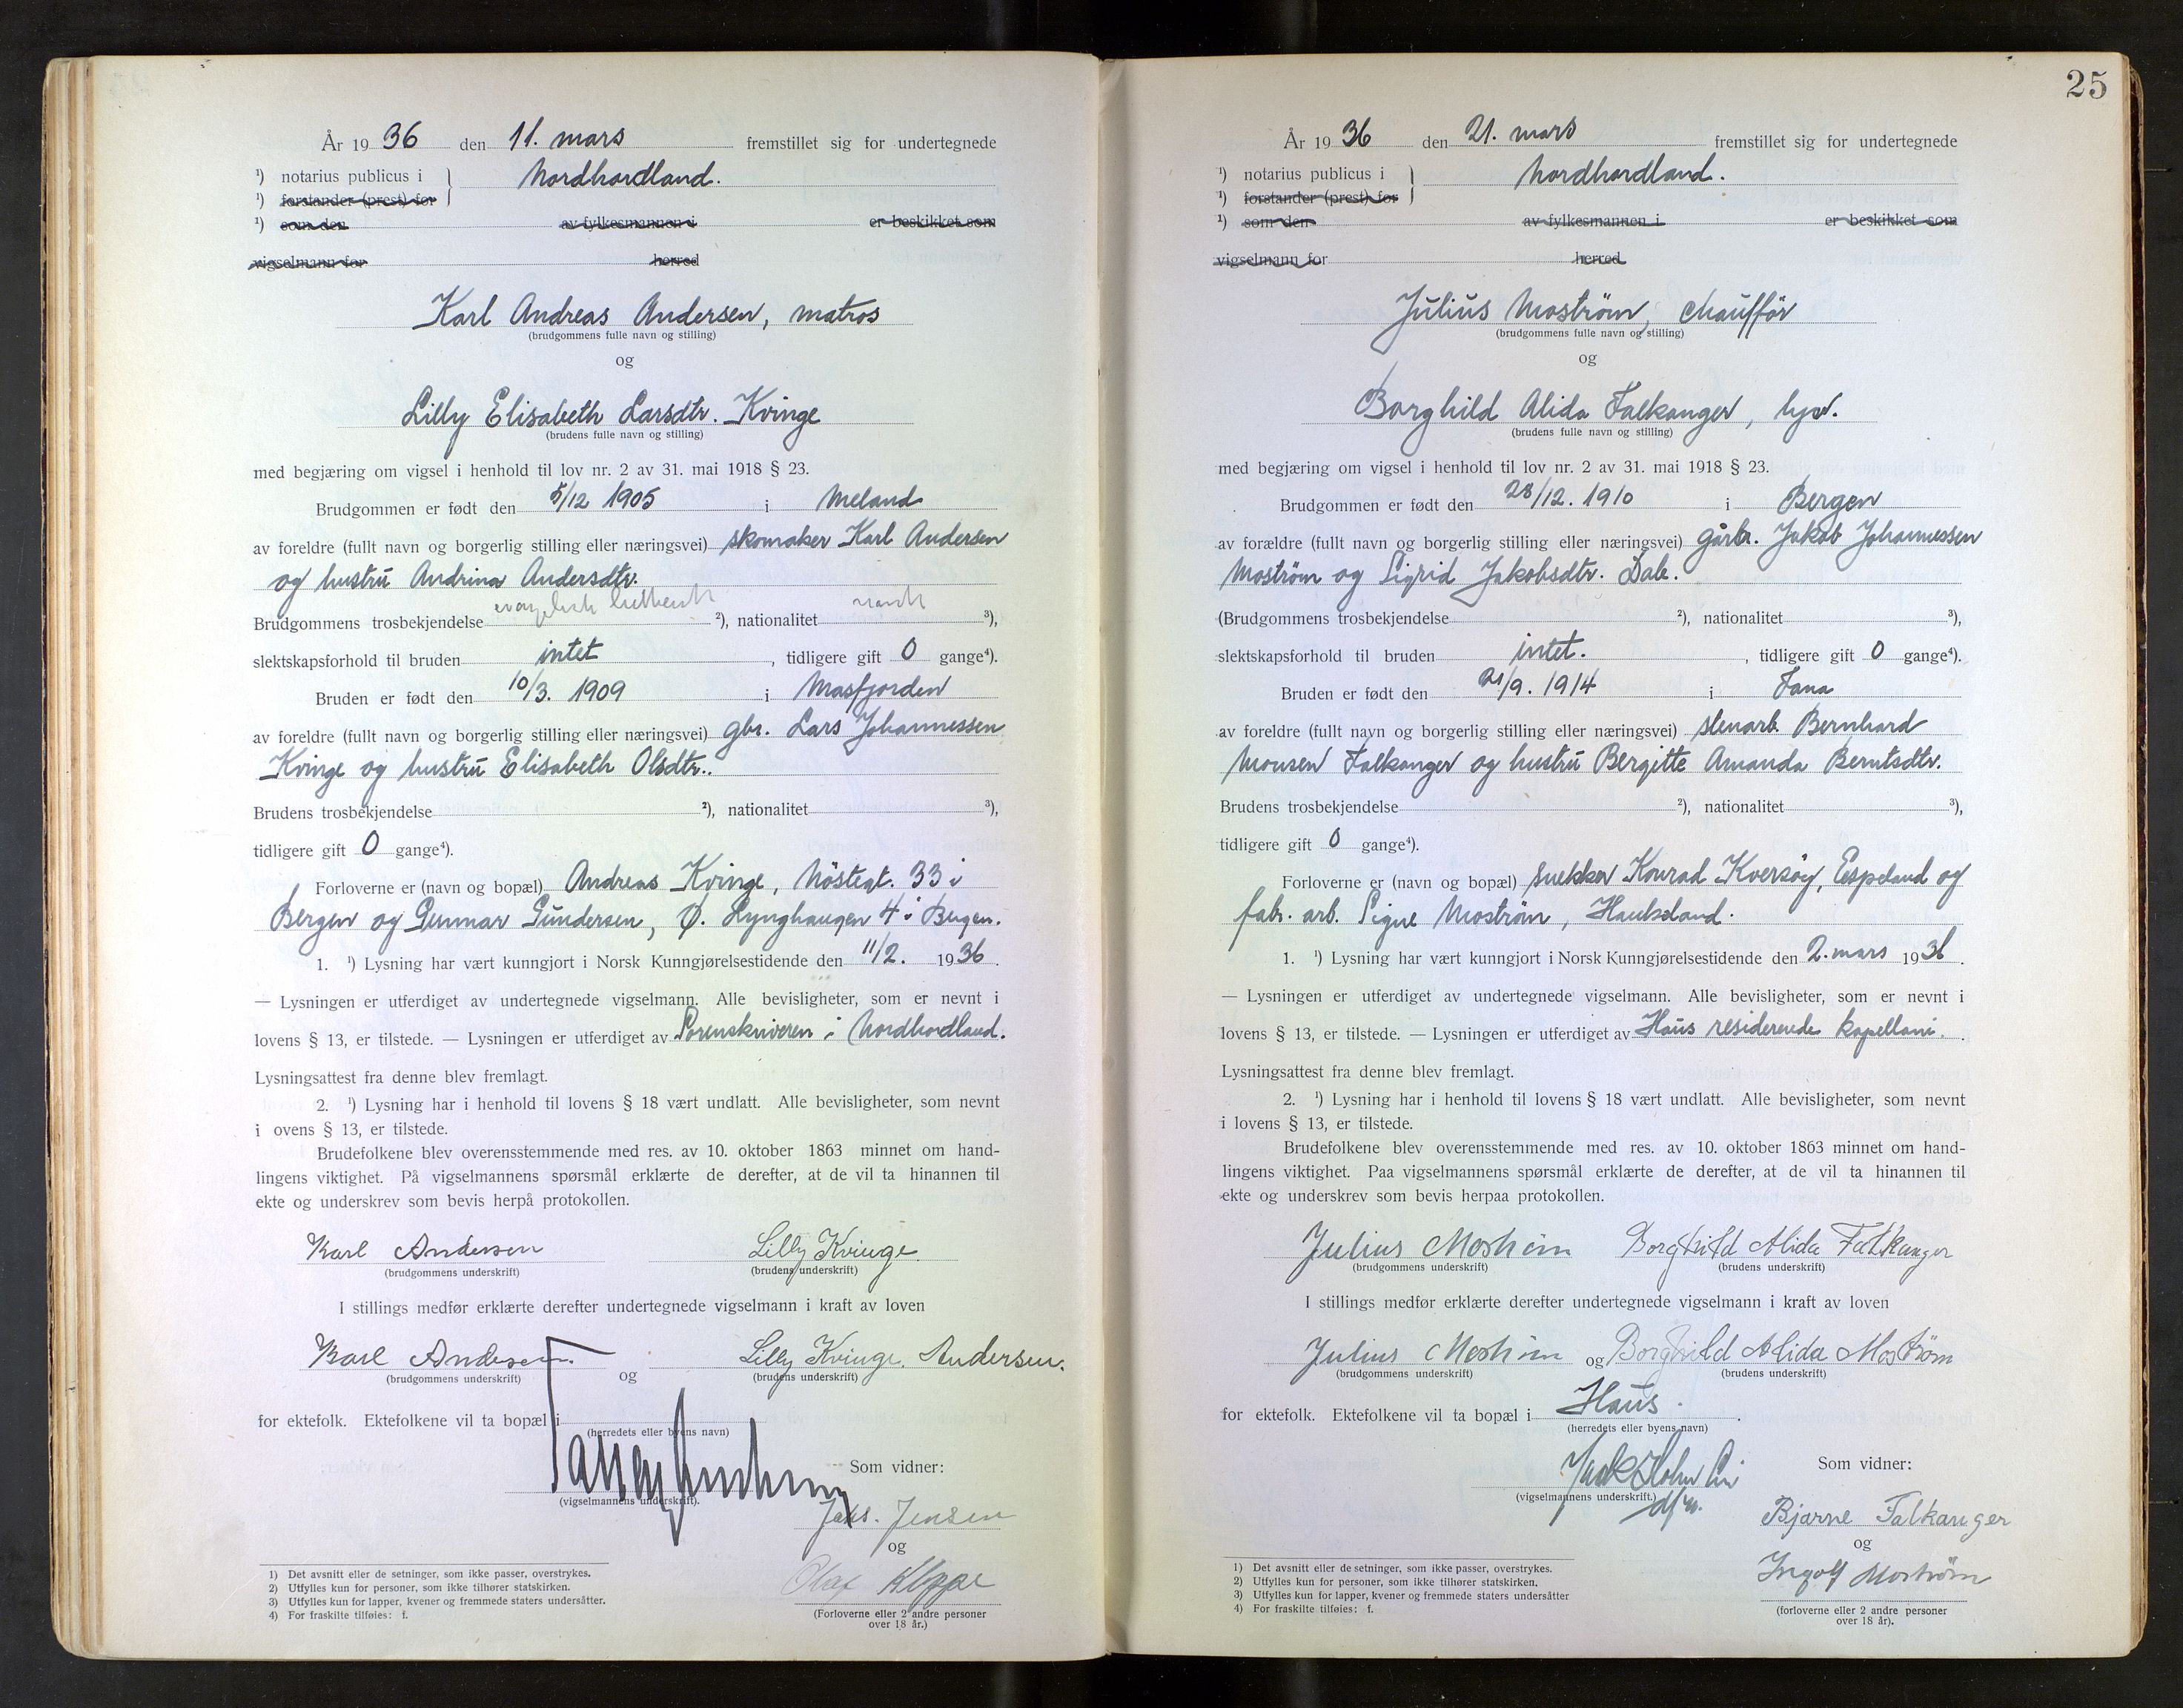 År 19 36 den 11. mars fremstillet sig for undertegnede
¹) notarius publicus i Nordhordland.
¹) forstander (prest) for
¹) som den av fylkesmannen i er beskikket som
vigselmann for herred
Karl Andreas Andersen, matros
(brudgommens fulle navn og stilling)
og
Lilly Elisabeth Larsdtr. Kvinge
(brudens fulle navn og stilling)
med begjæring om vigsel i henhold til lov nr. 2 av 31. mai 1918 § 23.
Brudgommen er født den 5/12 1905 i Meland
av foreldre (fullt navn og borgerlig stilling eller næringsvei) skomaker Karl Andersen
og hustru Andrina Andersdtr.
Brudgommens trosbekjendelse evangelisk luthersk ²), nationalitet norsk ³),
slektskapsforhold til bruden intet, tidligere gift 0 gange⁴).
Bruden er født den 10/3. 1909 i Masfjorden
av foreldre (fullt navn og borgerlig stilling eller næringsvei) gbr. Lars Johannessen
Kvinge og hustru Elisabeth Olsdtr..
Brudens trosbekjendelse ²), nationalitet ³),
tidligere gift 0 gange⁴).
Forloverne er (navn og bopæl) Andreas Kvinge, Nöstegt. 33 i
Bergen og Gunnar Gundersen, Ø. Lynghaugen 4 i Bergen.
1. ¹) Lysning har vært kunngjort i Norsk Kunngjørelsestidende den 11/2. 1936.
— Lysningen er utferdiget av undertegnede vigselmann. Alle bevisligheter, som er nevnt i
lovens § 13, er tilstede. — Lysningen er utferdiget av Sorenskriveren i Nordhordland.
Lysningsattest fra denne blev fremlagt.
2. ¹) Lysning har i henhold til lovens § 18 vært undlatt. Alle bevisligheter, som nevnt
i ovens § 13, er tilstede.
Brudefolkene blev overensstemmende med res. av 10. oktober 1863 minnet om hand-
lingens viktighet. På vigselmannens spørsmål erklærte de derefter, at de vil ta hinannen til
ekte og underskrev som bevis herpå protokollen.
Karl Andersen Lilly Kvinge
(brudgommens underskrift) (brudens underskrift)
I stillings medfør erklærte derefter undertegnede vigselmann i kraft av loven
Karl Andersen. og Lilly Kvinge. Andersen.
(brudgommens underskrift) (brudens underskrift)
for ektefolk. Ektefolkene vil ta bopæl i
(herredets eller byens navn)
Som vidner:
(vigselmannens underskrift).
Jensen
og
Olaf Kleppe
(Forloverne eller 2 andre personer
over 18 år.)
1) Det avsnitt eller de setninger, som ikke passer, overstrykes.
2) Utfylles kun for personer, som ikke tilhører statskirken.
3) Utfylles kun for lapper, kvener og fremmede staters undersåtter.
4) For fraskilte tilføies: f.
25
År 19 36 den 21. mars fremstillet sig for undertegnede
¹) notarius publicus i Nordhordland.
¹) forstander (prest) for
¹) som den av fylkesmannen i er beskikket som
vigselmann for herred
Julius Moström, chauffør
(brudgommens fulle navn og stilling)
og
Borghild Alida Falkanger, hjv.
(brudens fulle navn og stilling)
med begjæring om vigsel i henhold til lov nr. 2 av 31. mai 1918 § 23.
Brudgommen er født den 28/12. 1910 i Bergen
av forældre (fullt navn og borgerlig stilling eller næringsvei) gårbr. Jakob Johannessen
Moström og Sigrid Jakobsdtr. Dale.
(Brudgommens trosbekjendelse ²), nationalitet ³),
slektskapsforhold til bruden intet., tidligere gift 0 gange⁴).
Bruden er født den 21/9. 1914 i Fana
av foreldre (fullt navn og borgerlig stilling eller næringsvei) stenarb. Bernhard
Monsen Falkanger og hustru Bergitte Amanda Berntsdtr.
Brudens trosbekjendelse ²), nationalitet ³),
tidligere gift 0 gange⁴).
Forloverne er (navn og bopæl) snekker Konrad Kversöy, Espeland og
fabr. arb. Signe Moström, Haukeland.
1. ¹) Lysning har vært kunngjort i Norsk Kunngjørelsestidende den 2. mars 1936.
— Lysningen er utferdiget av undertegnede vigselmann. Alle bevisligheter, som er nevnt i
lovens § 13, er tilstede. — Lysningen er utferdiget av Haus residerende kapellani.
Lysningsattest fra denne blev fremlagt.
2. ¹) Lysning har i henhold til lovens § 18 vært undlatt. Alle bevisligheter, som nevnt
i lovens § 13, er tilstede.
Brudefolkene blev overensstemmende med res. av 10. oktober 1863 minnet om hand-
lingens viktighet. Paa vigselmannens spørsmål erklærte de derefter, at de vil ta hinannen til
ekte og underskrev som bevis herpaa protokollen.
Julius Moström Borghild Alida Falkanger
(brudgommens underskrift) (brudens underskrift)
I stillings medfør erklærte derefter undertegnede vigselmann i kraft av loven
Julius Moström og Borghild Alida Moström
(brudgommens underskrift) (brudens underskrift)
for ektefolk. Ektefolkene vil ta bopæl i Haus.
(herredets eller byens navn)
Som vidner:
(vigselmannens underskrift.)
dfm.
Bjarne Falkanger
og
Ingolf Moström
(forloverne eller 2 andre personer
over 18 år).
1) Det avsnitt eller de setninger, som ikke passer, overstrykes.
2) Utfylles kun for personer, som ikke tilhører statskirken.
3) Utfylles kun for lapper, kvener og fremmede staters undersåtter
4) For fraskilte tilføies: f.